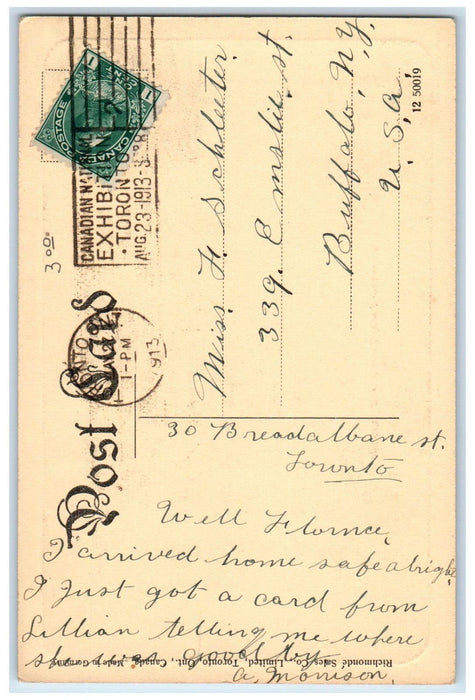 3 00
CANADA POSTAGE
1 ONE CENT 1
CANADIAN NATIONAL
EXHIBITION
TORONTO
AUG.23-1913-SEP.8
12 50019
Post Card
TORONTO
1-PM
1913
Miss. F. Schleeter
339. E mslie st.
Buffalo, N,Y,
U.S.A.
30 Breadalbane st.
Toronto
Well Flornce,
I arrived home safe alright
I Just got a card from
Lillian telling me where
she was good by
A, Morrison.
Richmonde Sales Co., Limited, Toronto, Ont., Canada, Made in Germany